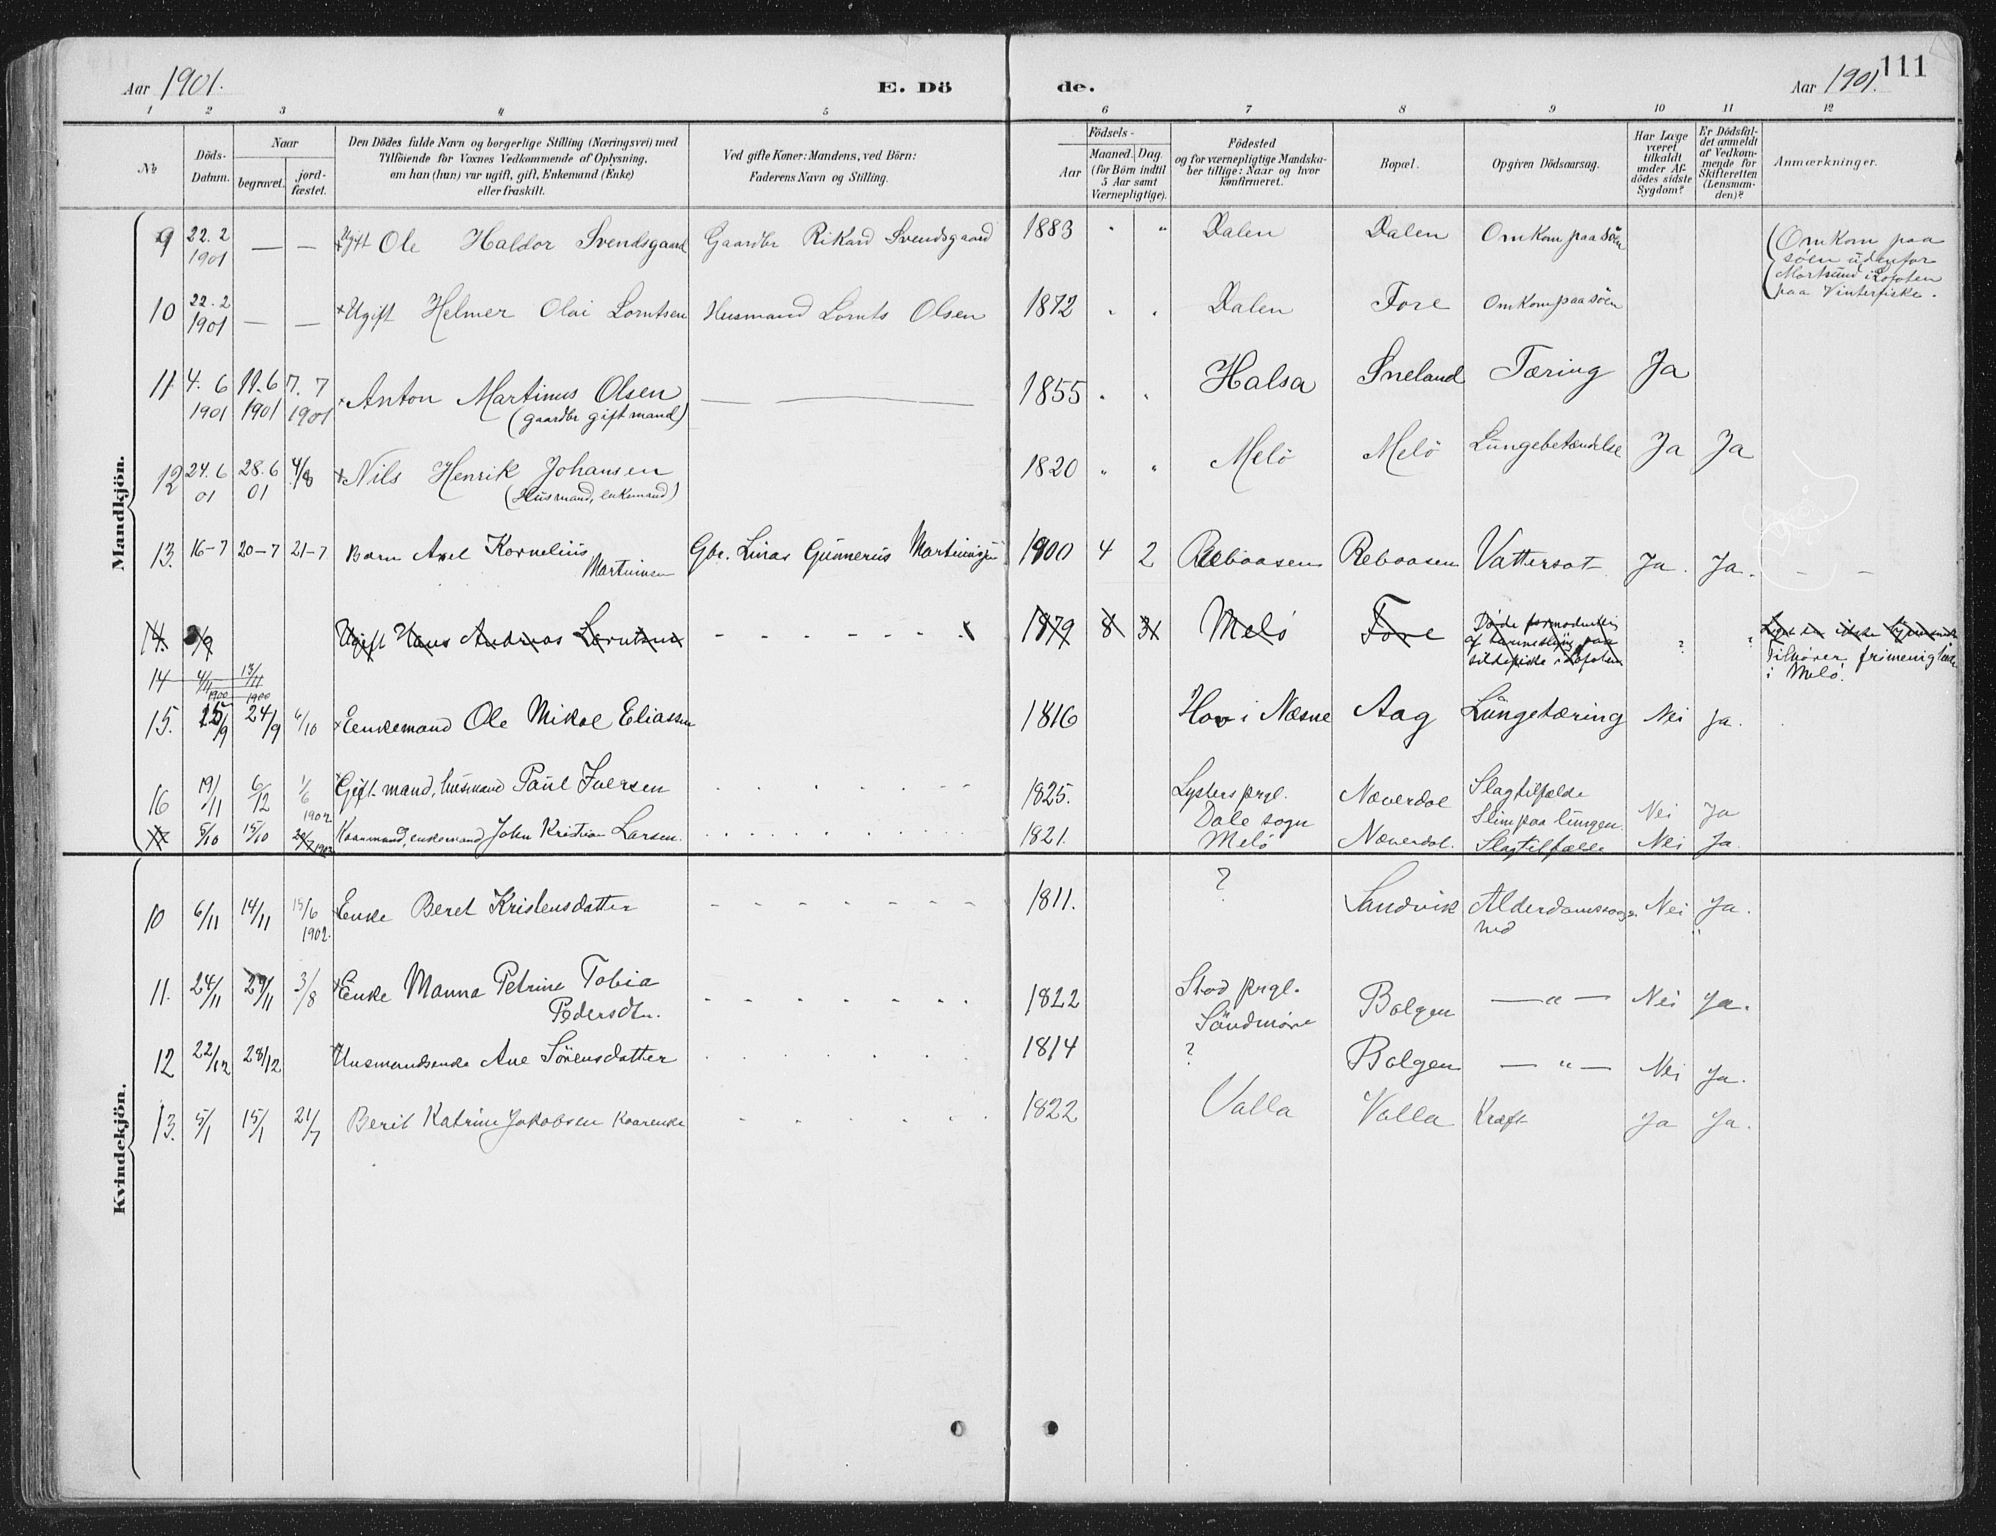 Aar 1901. E. Dö de. Aar 1901. 111
1 2 3 4 5 6 7 8 9 10 11 12
No Döds-Datum. Naar begravet. jord-fæstet. Den Dödes fulde Navn og borgerlige Stilling (Næringsvei) med Tilföiende for Voxnes Vedkommende af Oplysning, om han (hun) var ugift, gift, Enkemand (Enke) eller fraskilt. Ved gifte Koner: Mandens, ved Börn: Faderens Navn og Stilling. Födsels- Aar Maaned. Dag. (for Börn indtil 5 Aar samt Værnepligtige). Födested og for værnepligtige Mandska-ber tillige: Naar og hvor konfirmeret. Bopæl. Opgiven Dödsaarsag. Har Læge været tilkaldt under Af-dödes sidste Sygdom? Er Dödsfal-det anmeldt af Vedkom-mende for Skifteretten (Lensman-den)? Anmærkninger.
Mandkjön.
9 22.2 1901 — — Ugift Ole Haldor Svendsgaard Gaardbr Rikard Svendsgaard 1883 " " Dalen Dalen Omkom paa Söen (Omkom paa söen udenfor Mortsund i Lofoten paa Vinterfiske.
10 22.2 1901 — — Ugift Helmer Olai Lorntsen Husmand Lornts Olsen 1872 " " Dalen Fore Omkom paa söen
11. 4.6 1901 11.6 1901 7.7 1901 Anton Martinus Olsen (gaardbr gift mand) — — 1855 " " Halsa Sneland Tæring Ja
12 24.6 01 28.6 01 4/8 Nils Henrik Johansen (Husmand, enkemand) 1820 " " Melö Melö Lungebetændelse Ja Ja
13. 16-7 20-7 21-7 Barn Axel Kornelius Martinsen Gbr. Einar Gunnerius 1900 4 2 Reboasen Reboasen Vattersot Ja. Ja. — —
14. /9 Ugift Hans Andreas Lorntsen - - - - - - - 1879 8 31 Melö Fore Döde formodentlig af paa sildefiske i Lofoten ? ? Tilhører frimenigheden i Melö.
14 4/11 1900 13/11 1900
15. 15/9 24/9 6/10 Eenkemand Ole Mikal Eliassen 1816 Hov i Næsne Aag Lungetæring Nei Ja.
16 19/11 6/12 1/6 1902 Gift mand, husmand Paul Iversen - - - - - - 1825. Lysters prgl. Dale sogn Næverdal Slagtilfælde Slim paa lungen. Nei Ja
5/10 15/10 Kaarmand, enkemand John Kristian Larsen. 1821. Melö Næverdal. Slagtilfælde Nei Ja.
Kvindekjön.
10 6/11 14/11 15/6 1902. Enke Beret Kristensdatter - - - - - - - 1811. ? Sandvik Alderdomssvaghed Nei Ja.
11. 24/11 29/11 3/8 Enke Manna Petrine Tobia Pedersdtr. - - - - - - - 1822 Stod prgl. Söndmöre Bolgen — " — Nei Ja.
12 22/12 28/12 Husmandsenke Ane Sörensdatter 1814 ? Bolgen — " — Nei Ja.
13. 5/1 15/1 21/7 Berit Katrine Jakobsen Kaarenke 1822 Valla Valla Kræft Ja Ja.